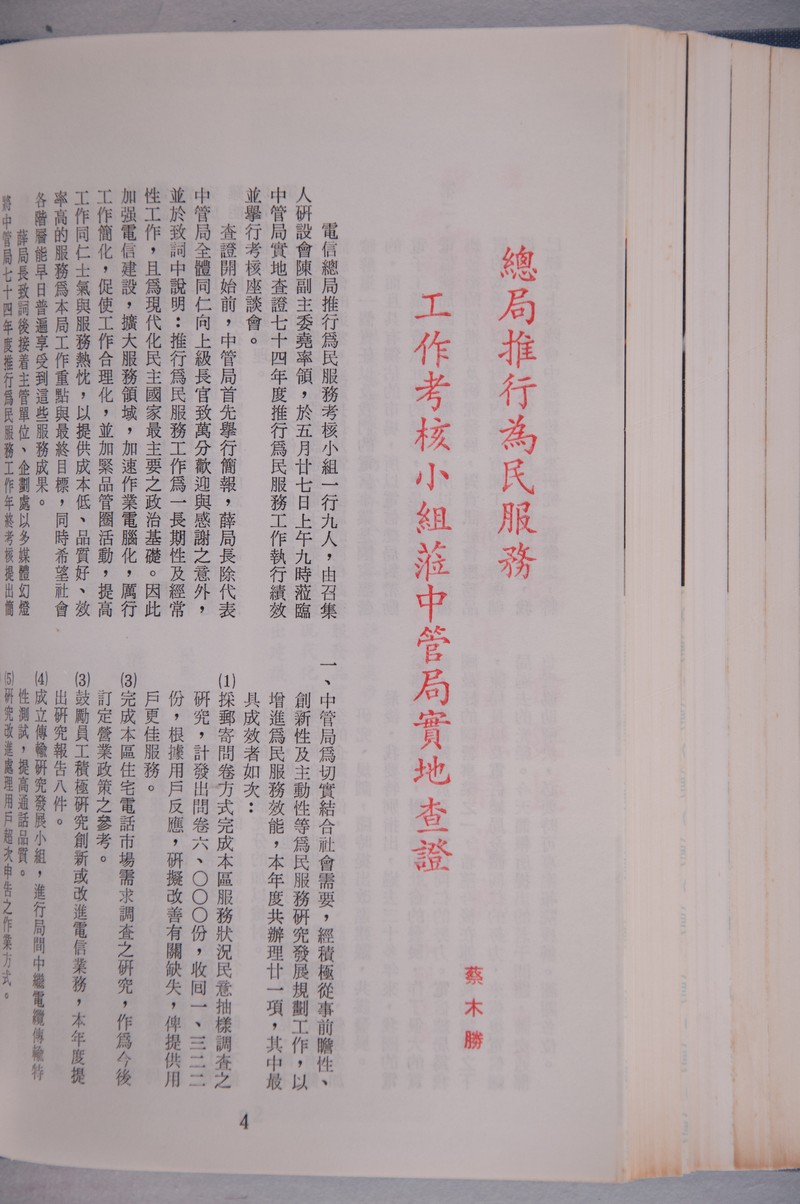 總局推行為民服務
工作考核小組蒞中管局實地查證
蔡木勝
電信總局推行爲民服務考核小組一行九人，由召集
人研設會陳副主委堯率領，於五月廿七日上午九時蒞臨
中管局實地查證七十四年度推行爲民服務工作執行績效
並舉行考核座談會。
查證開始前，中管局首先舉行簡報，薛局長除代表
中管局全體同仁向上級長官致萬分歡迎與感謝之意外，
並於致詞中說明：推行爲民服務工作爲一長期性及經常
性工作，且爲現代化民主國家最主要之政治基礎。因此
加强電信建設，擴大服務領域，加速作業電腦化，厲行
工作簡化，促使工作合理化，並加緊品管圈活動，提高
工作同仁士氣與服務熱忱，以提供成本低、品質好、效
率高的服務爲本局工作重點與最終目標，同時希望社會
各階層能早日普遍享受到這些服務成果。
薛局長致詞後接着主管單位、企劃處以多媒體幻燈
將中管局七十四年度推行爲民服務工作年終考核提出簡
一、中管局爲切實結合社會需要，經積極從事前瞻性、
創新性及主動性等爲民服務研究發展規劃工作，以
增進爲民服務效能，本年度共辦理廿一項，其中最
具成效者如次：
⑴採郵寄問卷方式完成本區服務狀況民意抽樣調查之
研究，計發出問卷六、〇〇〇份，收回一、三二二
份，根據用戶反應，研擬改善有關缺失，俾提供用
戶更佳服務。
⑶完成本區住宅電話市場需求調查之研究，作爲今後
訂定營業政策之參考。
⑶鼓勵員工積極研究創新或改進電信業務，本年度提
出研究報告八件。
⑷成立傳輸研究發展小組，進行局間中繼電纜傳輸特
性測試，提高通話品質。
⑸研究改進處理用戶超次申告之作業方式。
4